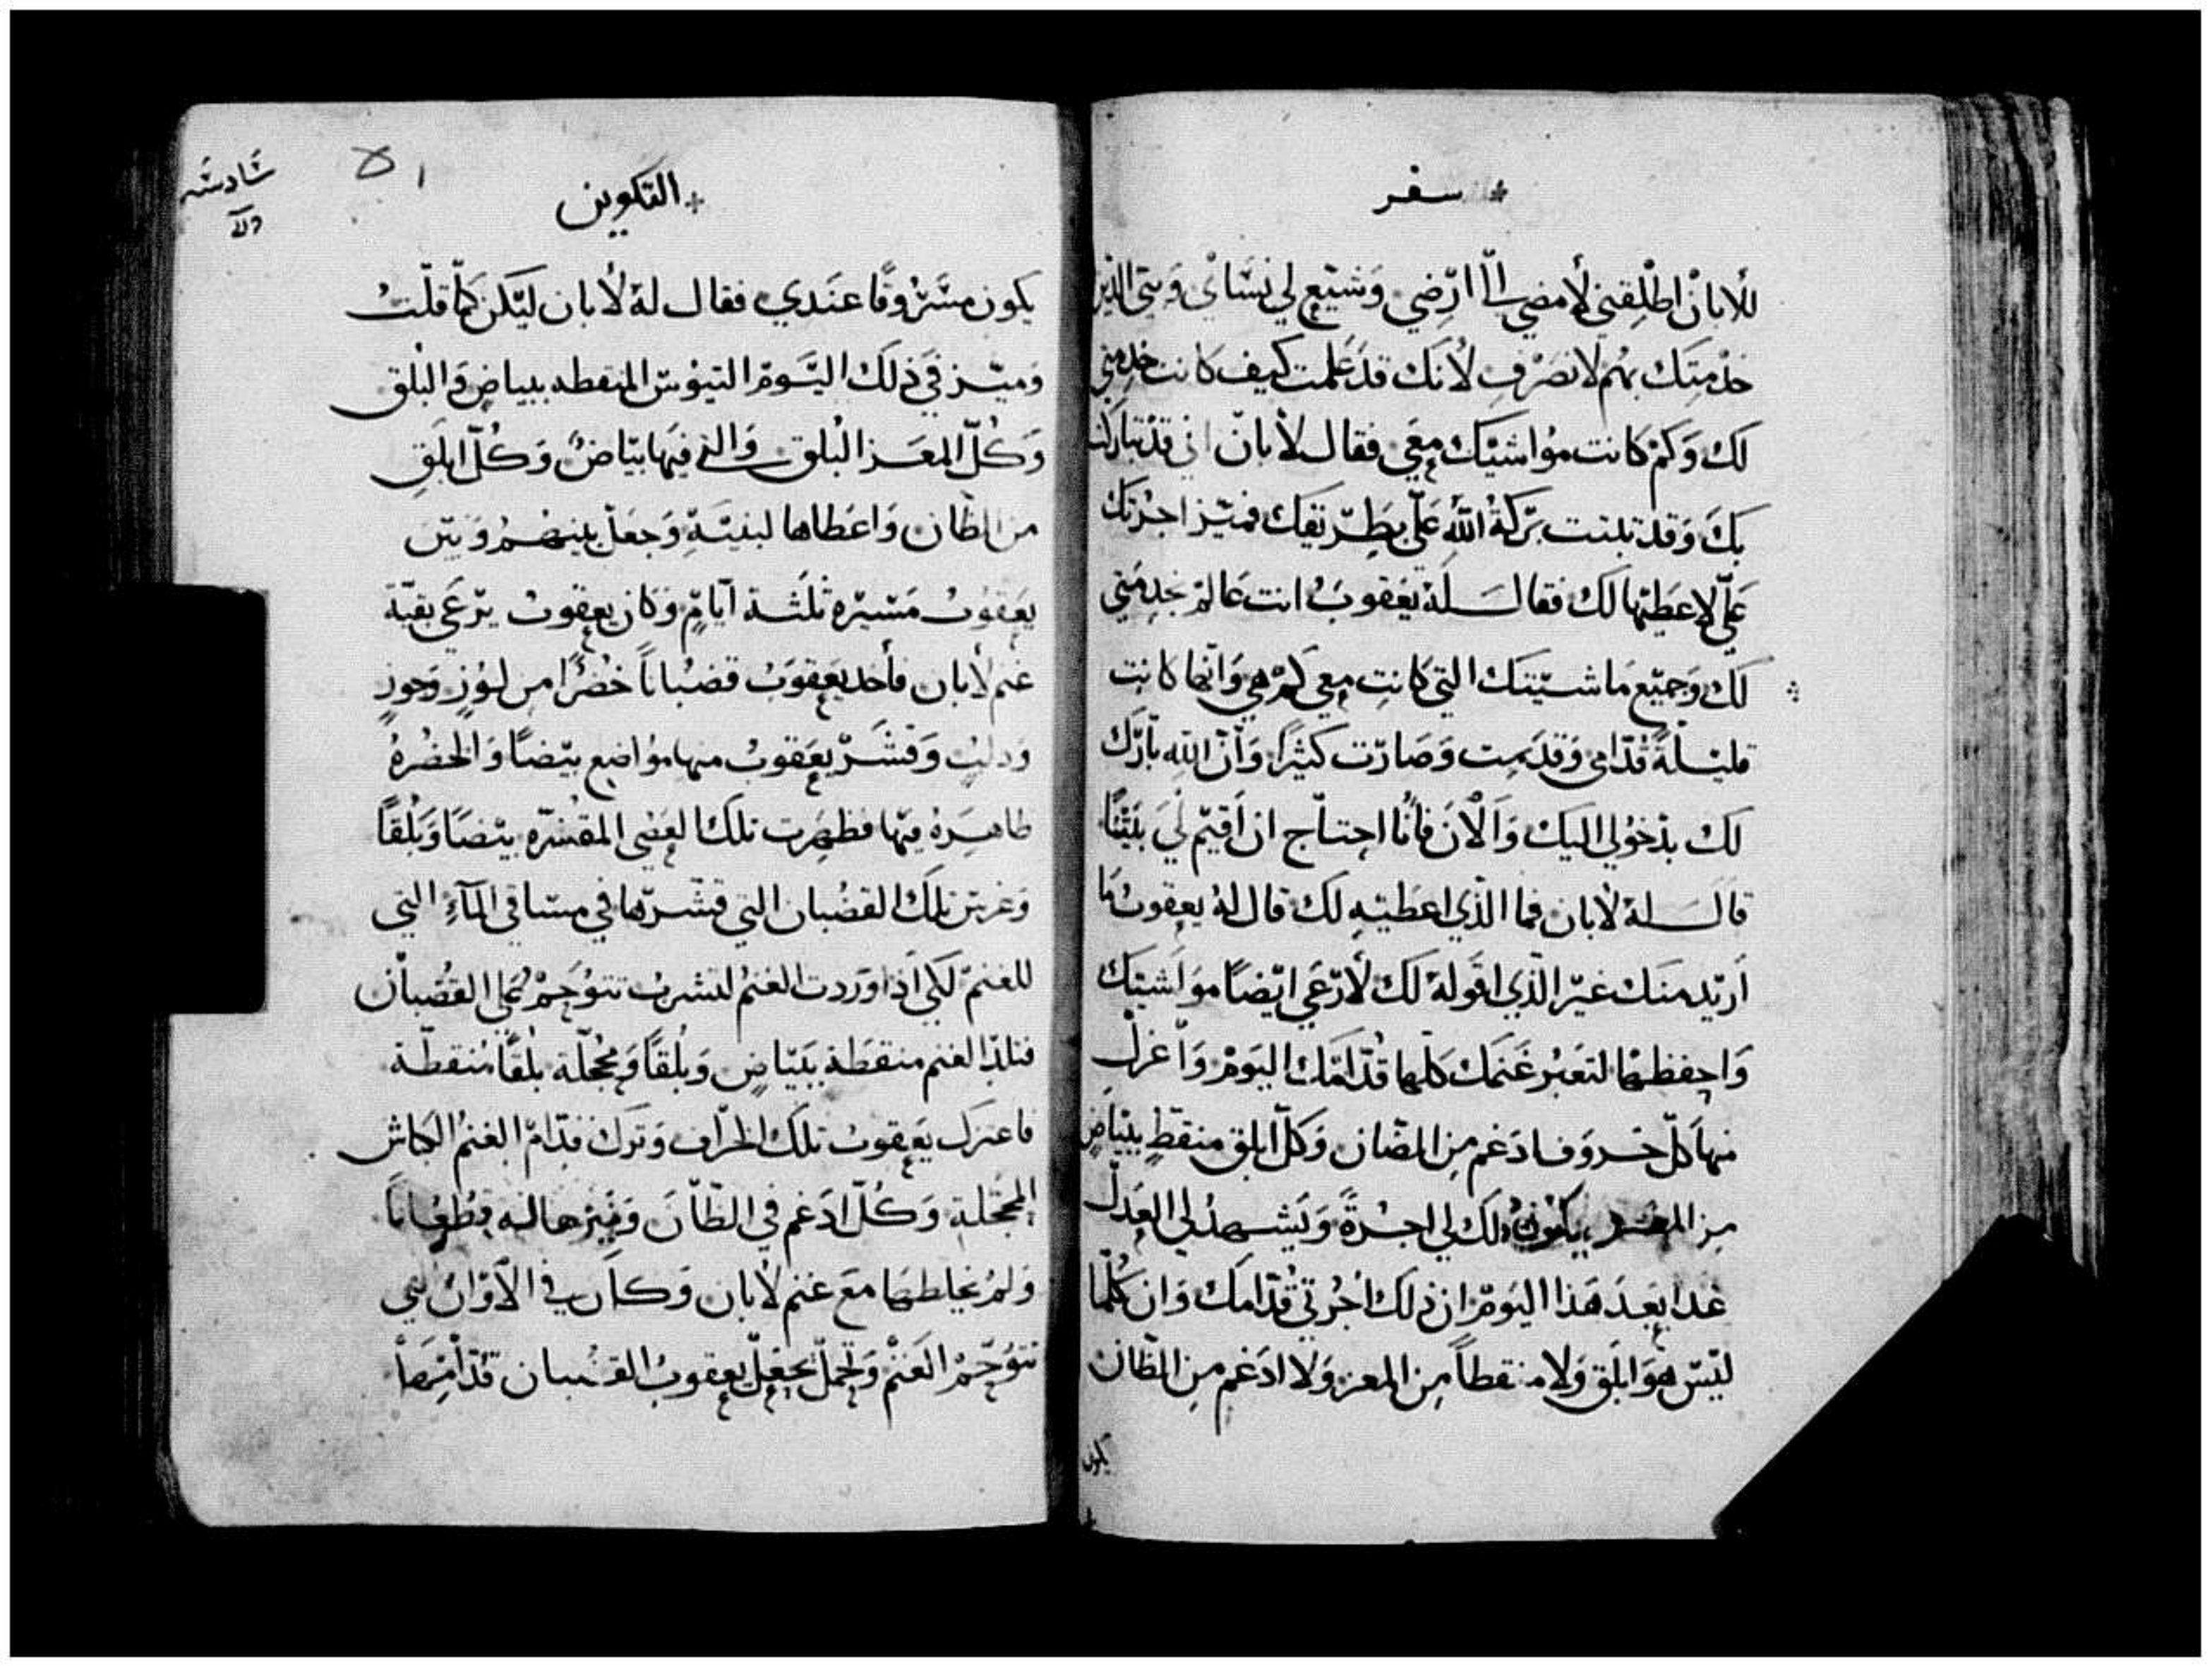 سفر
للأبان اطلقني لأمضي الى ارضي وشيع لي نسائ وبني الذين
خدمتك بهم لانصرف لأنك قد علمت كيف كانت خدمتي
لك وكم كانت مواشيك معي فقال لأبان اني قد تباركت
بك وقد تبنت بركة الله علي بطريقك فميز اجرتك
علي لاعطيها لك فقال له يعقوب انت عالم بخدمتي
لك وجميع ماشيتك التي كانت معي كم هي وانها كانت
قليلة قدامي وقد نمت وصارت كثيرا وان الله بارك
لك بدخولي اليك والأن فانا احتاج ان اقيم لي بيتا
قال له لأبان فما الذي اعطيه لك قال له يعقوب ما
اريد منك غير الذي اقوله لك لأرعي ايضا مواشيك
واحفظها لتعبر غنمك كلها قدامك اليوم واعزل
منها كل خروف ادغم من الضان وكل ابلق منقط ببياض
من المعز يكون ذلك لي اجرة ويشهد لي العدل
غدا بعد هذا اليوم ان ذلك اجرتي قدامك وان كلما
ليس هو ابلق ولا منقطا من المعز ولا ادغم من الظان
يكون
سادسه
٥١
التكوين
يكون مسروقا عندي فقال له لأبان ليكن كما قلت
وميز في ذلك اليوم التيوس المنقطه ببياض والبلق
وكل المعز البلق والتي فيها بياض وكل ابلق
من الظان واعطاها لبنيه وجعل بينهم وبين
يعقوب مسيره ثلثة ايام وكان يعقوب يرعي بقية
غنم لأبان فأخد يعقوب قضبانا خضرا من لوز وجوز
ودلب وقشر يعقوب منها مواضع بيضا والخضره
ظاهره فيها فظهرت تلك العصي المقشره بيضا وبلقا
وغرس تلك القضبان التي قشرها في مساقي المآء التي
للغنم لكي اذا وردت الغنم لتشرب تتوحم علي القضبان
فتلد الغنم منقطة ببياض وبلقا ومحجلة بلقا منقطة
فاعزل يعقوب تلك الخراف وترك قدام الغنم الكباش
المحجلة وكل ادغم في الظان وميزها له قطعانا
ولم يخلطها مع غنم لأبان وكان في الأوان التي
تتوحم الغنم وتحمل يجعل يعقوب القضبان قدامها